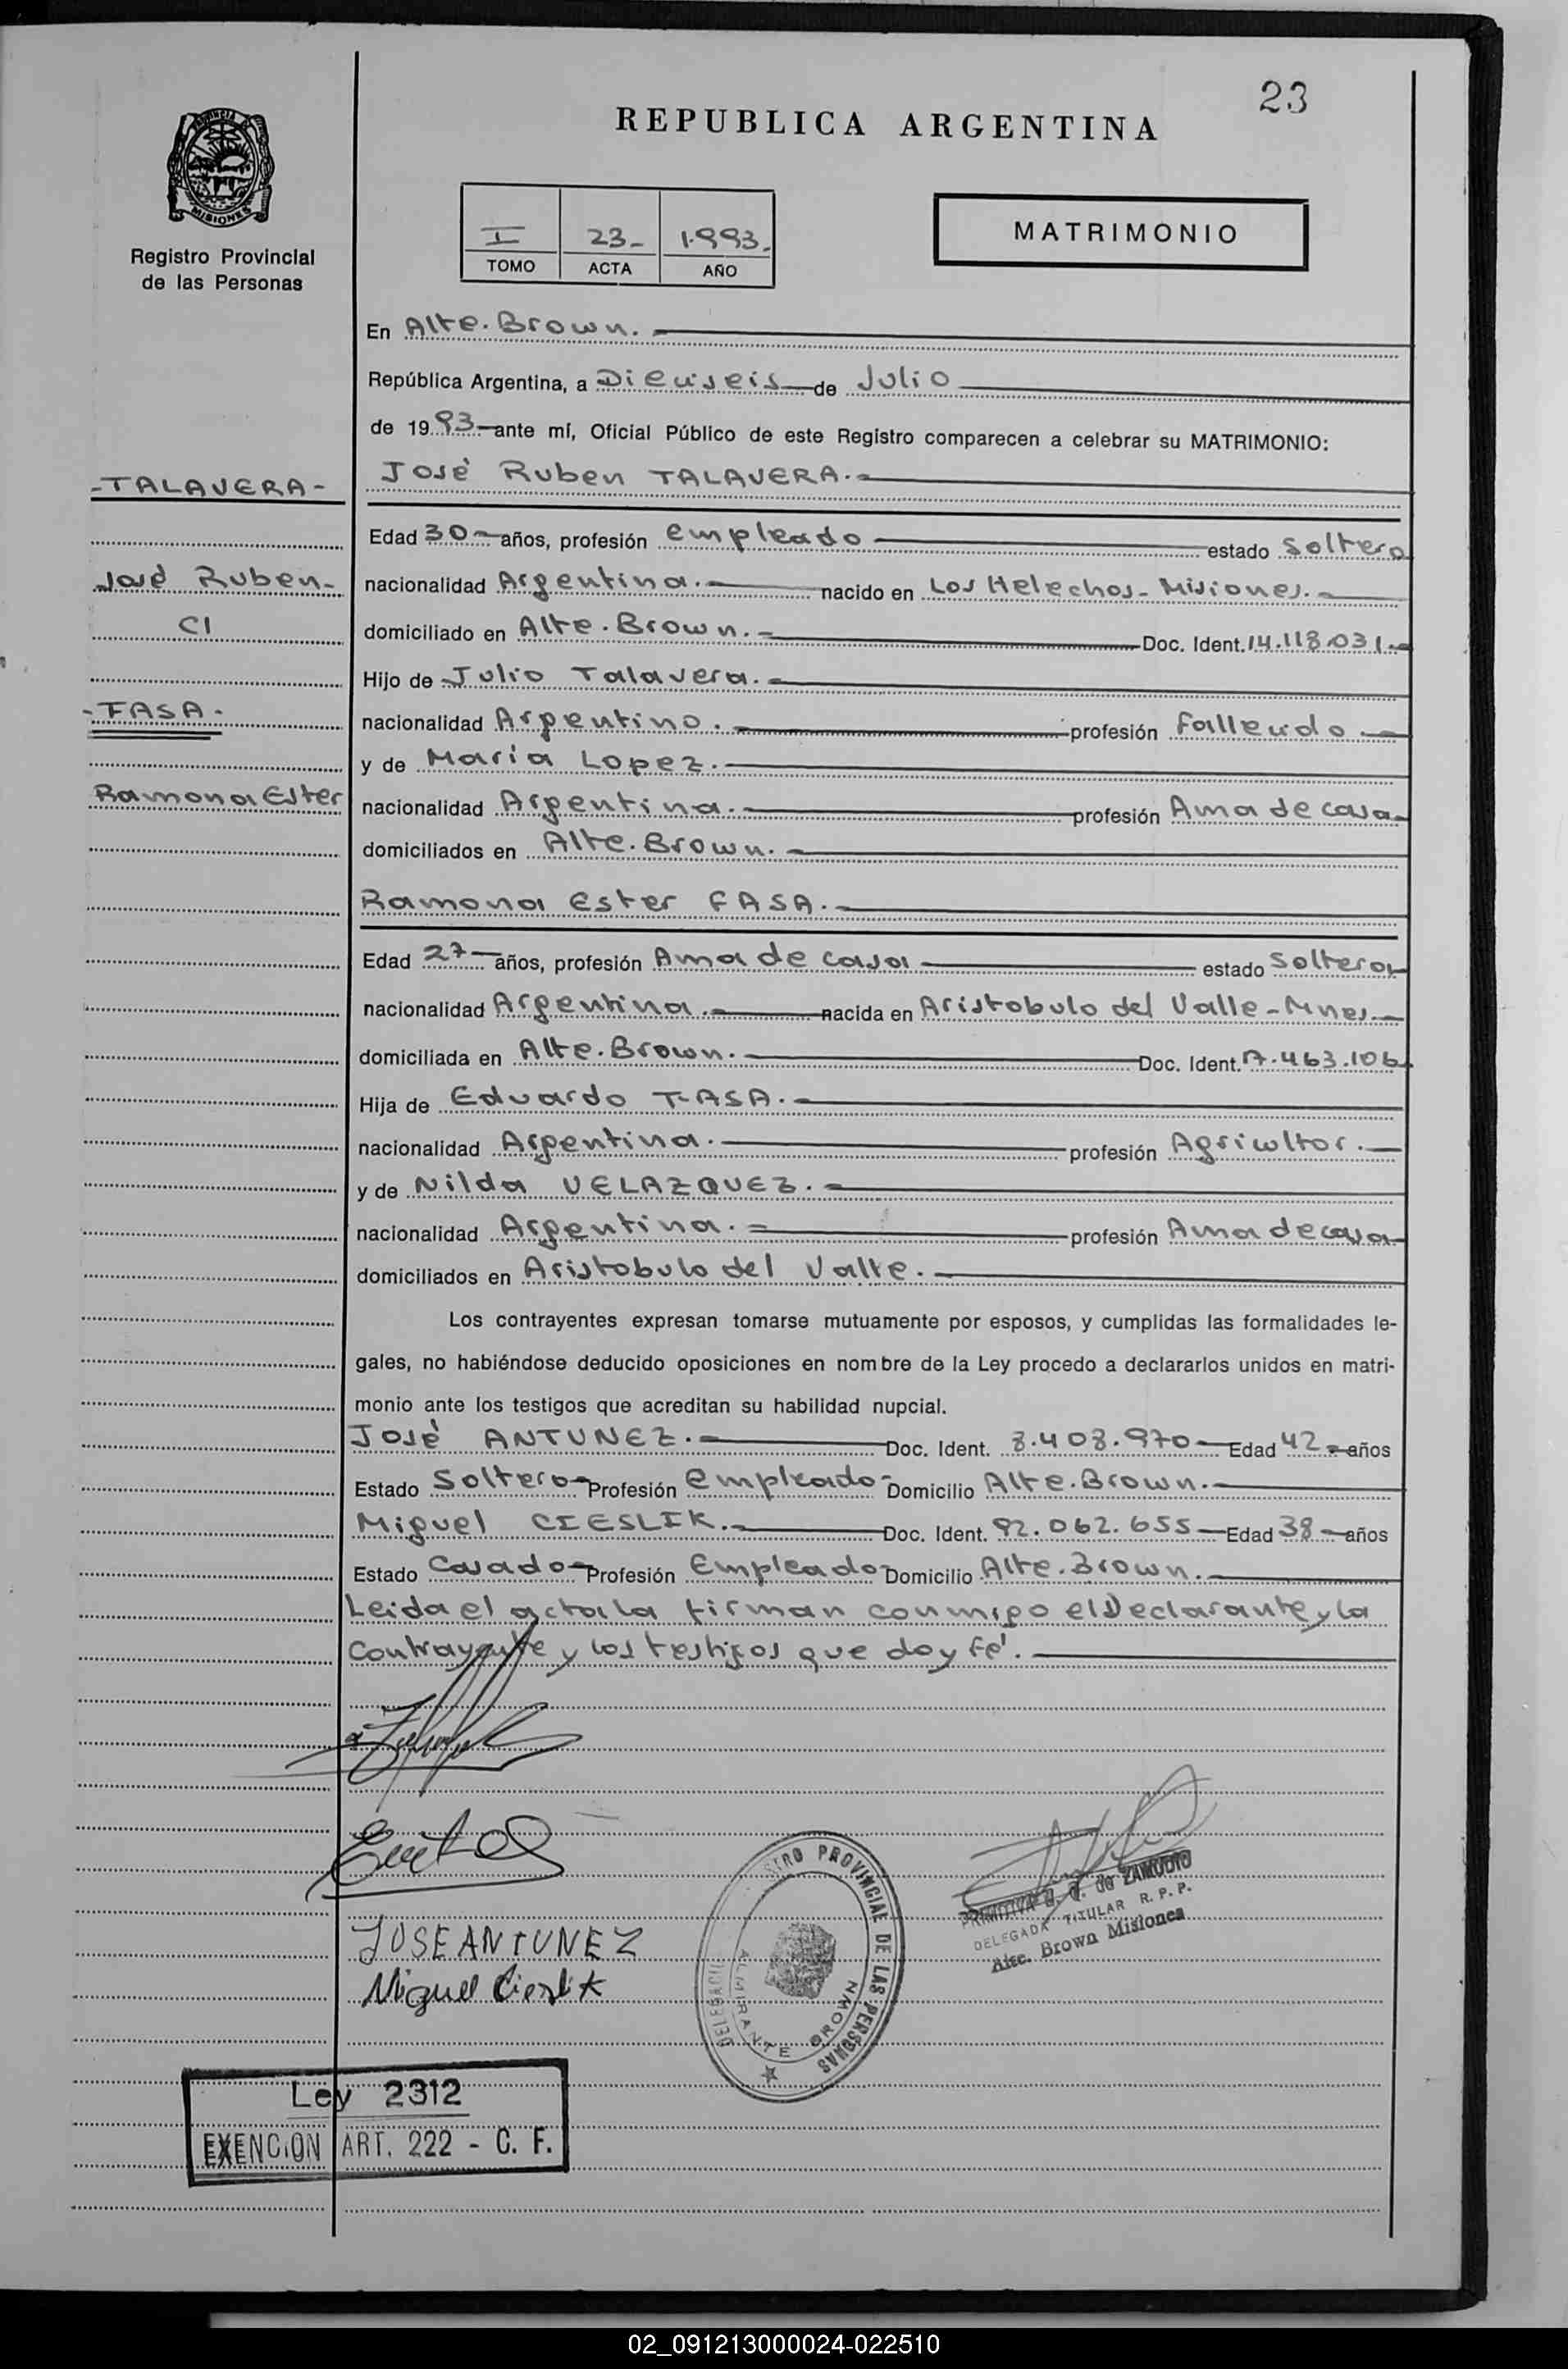 23
REPUBLICA ARGENTINA
PROVINCIA DE
MISIONES
Registro Provincial
de las Personas
I 23- 1.993.
TOMO ACTA AÑO
MATRIMONIO
En Alte. Brown.
República Argentina, a Dieciseis de Julio
de 1993 ante mí, Oficial Público de este Registro comparecen a celebrar su MATRIMONIO:
-TALAVERA- José Ruben TALAVERA.
Edad 30 años, profesión empleado estado Soltero
José Ruben- nacionalidad Argentina. nacido en Los Helechos - Misiones.
CI domiciliado en Alte. Brown. Doc. Ident. 14.118.031.
Hijo de Julio Talavera.
-FASA- nacionalidad Argentino. profesión Fallecido.
y de María Lopez.
Ramona Ester nacionalidad Argentina. profesión Ama de casa
domiciliados en Alte. Brown.
Ramona Ester FASA.
Edad 27 años, profesión Ama de casa estado Soltera
nacionalidad Argentina. nacida en Aristobulo del Valle - Mnes.
domiciliada en Alte. Brown. Doc. Ident. 17.463.106
Hija de Eduardo FASA.
nacionalidad Argentina. profesión Agricultor.
y de Nilda VELAZQUEZ.
nacionalidad Argentina. profesión Ama de casa
domiciliados en Aristobulo del Valle.
Los contrayentes expresan tomarse mutuamente por esposos, y cumplidas las formalidades le-
gales, no habiéndose deducido oposiciones en nombre de la Ley procedo a declararlos unidos en matri-
monio ante los testigos que acreditan su habilidad nupcial.
José ANTUNEZ. Doc. Ident. 8.408.970 Edad 42 años
Estado Soltero Profesión empleado Domicilio Alte. Brown.
Miguel CIESLIK. Doc. Ident. 92.062.655 Edad 38 años
Estado Casado Profesión Empleado Domicilio Alte. Brown.
Leida el acta la firman conmigo el Declarante y la
Contrayente y los testigos que doy fé.
JOSE ANTUNEZ
Miguel Cieslik
PROVINCIAL DE LAS PERSONAS
ALMIRANTE BROWN
de ZAMUDIO
DELEGADA TITULAR R. P. P.
Alte. Brown Misiones
Ley 2312
EXENCION ART. 222 - C. F.
02_091213000024-022510